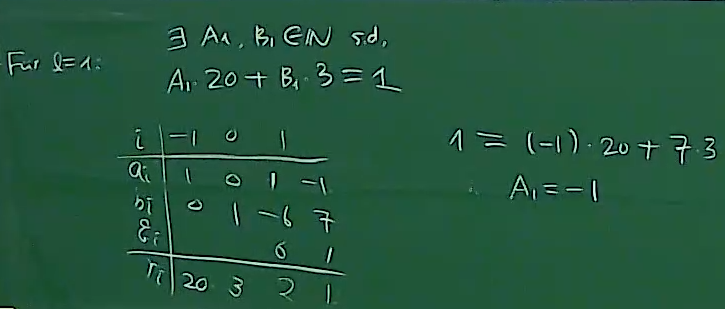 Für l=1:
∃ A₁, B₁ ∈ ℕ s.d.
A₁·20 + B₁·3 ≡ 1
i | -1 0 1
aᵢ | 1 0 1 -1
bᵢ | 0 1 -6 7
qᵢ | 6 1
rᵢ | 20 3 2 1
1 = (-1)·20 + 7·3
A₁ = -1